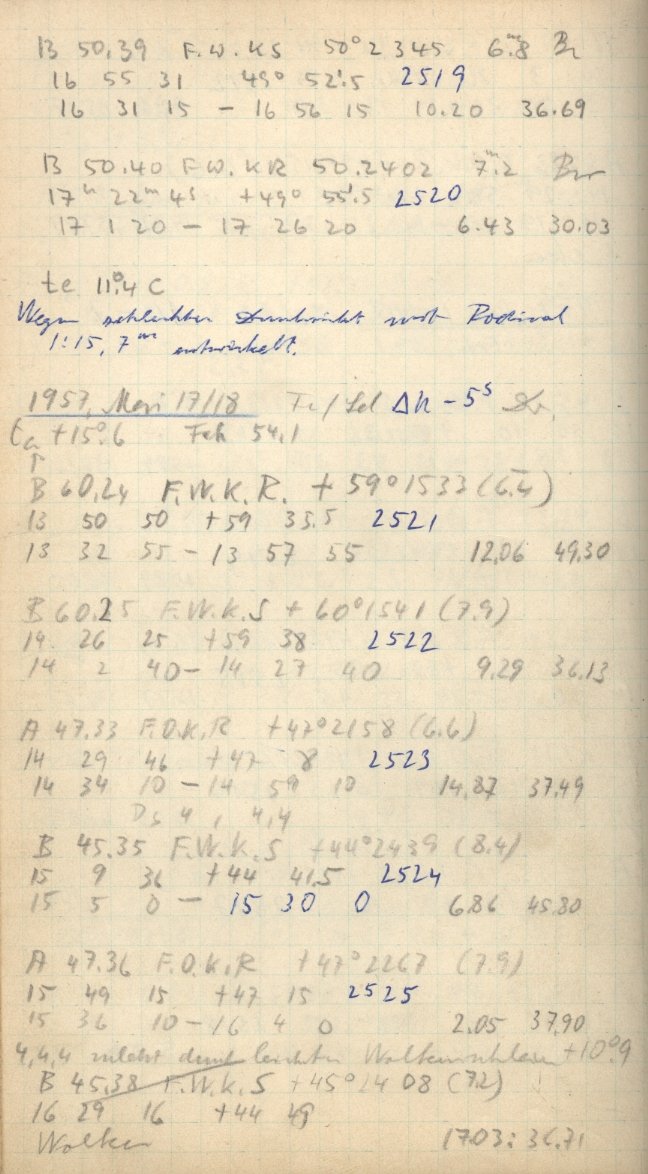 B 50,39 F.W.KS 50° 2345 6.ᵐ8 Br
16 55 31 49° 52'.5 2519
16 31 15 – 16 56 15 10.20 36.69
B 50.40 F.W.KR 50.2402 7.ᵐ2 Br
17ʰ 22ᵐ 4s +49° 55'.5 2520
17 1 20 – 17 26 20 6.43 30.03
te 11°.4 C
Wegen schlechter Durchsicht mit Rodinal
1:15, 7ᵐ entwickelt.
1957, Mai 17/18 Te/Lel Δh – 5ˢ
ta +15°.6 Feh 54,1
B 60,24 F.W.K.R. + 59° 1533 (6.4)
13 50 50 +59 33.5 2521
13 32 55 – 13 57 55 12,06 49,30
B 60.25 F.W.K.S + 60° 1541 (7.9)
14 26 25 +59 38 2522
14 2 40 – 14 27 40 9.29 36.13
A 47.33 F.O.K.R +47° 2158 (6.6)
14 29 46 +47 8 2523
14 34 10 – 14 59 10 14,87 37,49
Ds 4, 4,4
B 45.35 F.W.K.S +44° 2439 (8.4)
15 9 36 +44 41.5 2524
15 5 0 – 15 30 0 6.86 45.80
A 47.36 F.O.K.R +47° 2267 (7.9)
15 49 15 +47 15 2525
15 36 10 – 16 4 0 2.05 37.90
4,4,4 zuletzt durch leichten Wolkenschleier +10°.9
B 45.38 F.W.K.S +45° 2408 (7.2)
16 29 16 +44 49
Wolken 17.03: 36.71